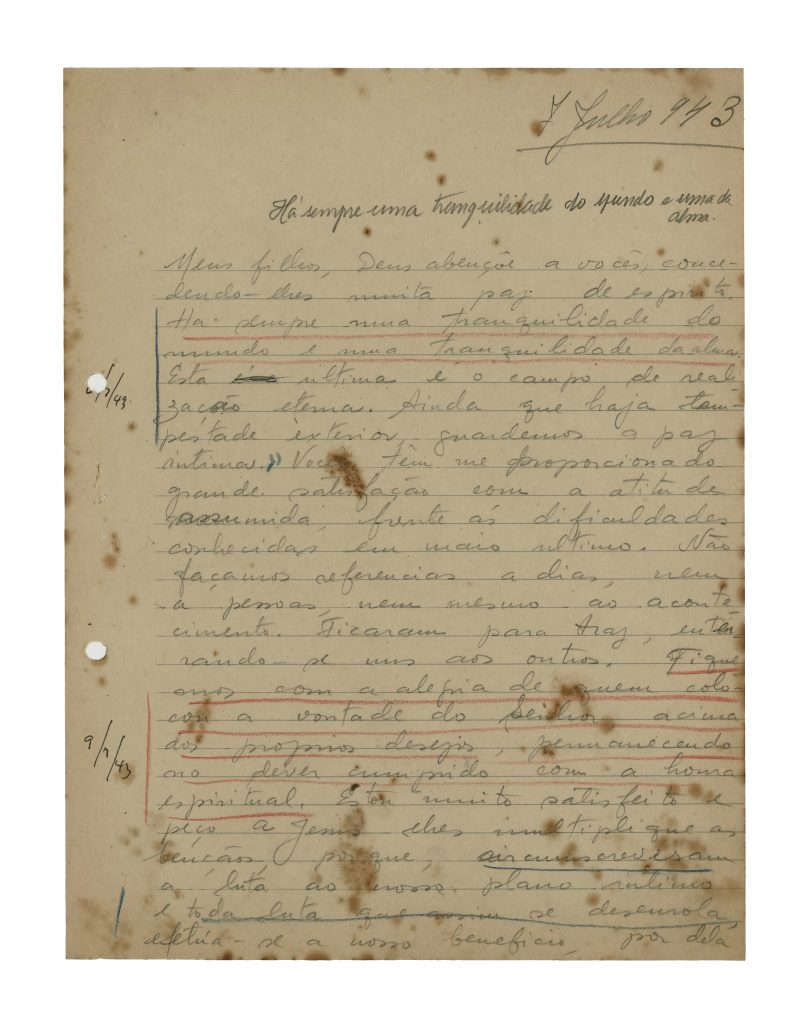 7 Julho 943
Há sempre uma tranquilidade do mundo e uma da
alma.
Meus filhos, Deus abençôe a vocês, conce-
dendo-lhes muita paz de espirito.
Ha sempre uma tranquilidade do
mundo e uma tranquilidade da alma.
Esta ultima é o campo de reali-
zação eterna. Ainda que haja tem-
pestade exterior, guardemos a paz
intima. Vocês têm me proporcionado
grande satisfação com a atitude
assumida, frente ás dificuldades
conhecidas em maio ultimo. Não
façamos referencias a dias, nem
a pessoas, nem mesmo ao aconte-
cimento. Ficaram para traz, enter-
rando-se uns aos outros. Fique-
mos com a alegria de quem colo-
cou a vontade do Senhor acima
dos proprios desejos, permanecendo
no dever cumprido com a honra
espiritual. Estou muito satisfeito e
peço a Jesus lhes multiplique as
bençãos, porque, circunscreveram
a luta ao nosso plano intimo
e toda luta que assim se desenrola,
efetúa-se a nosso beneficio, por dela
9/7/43